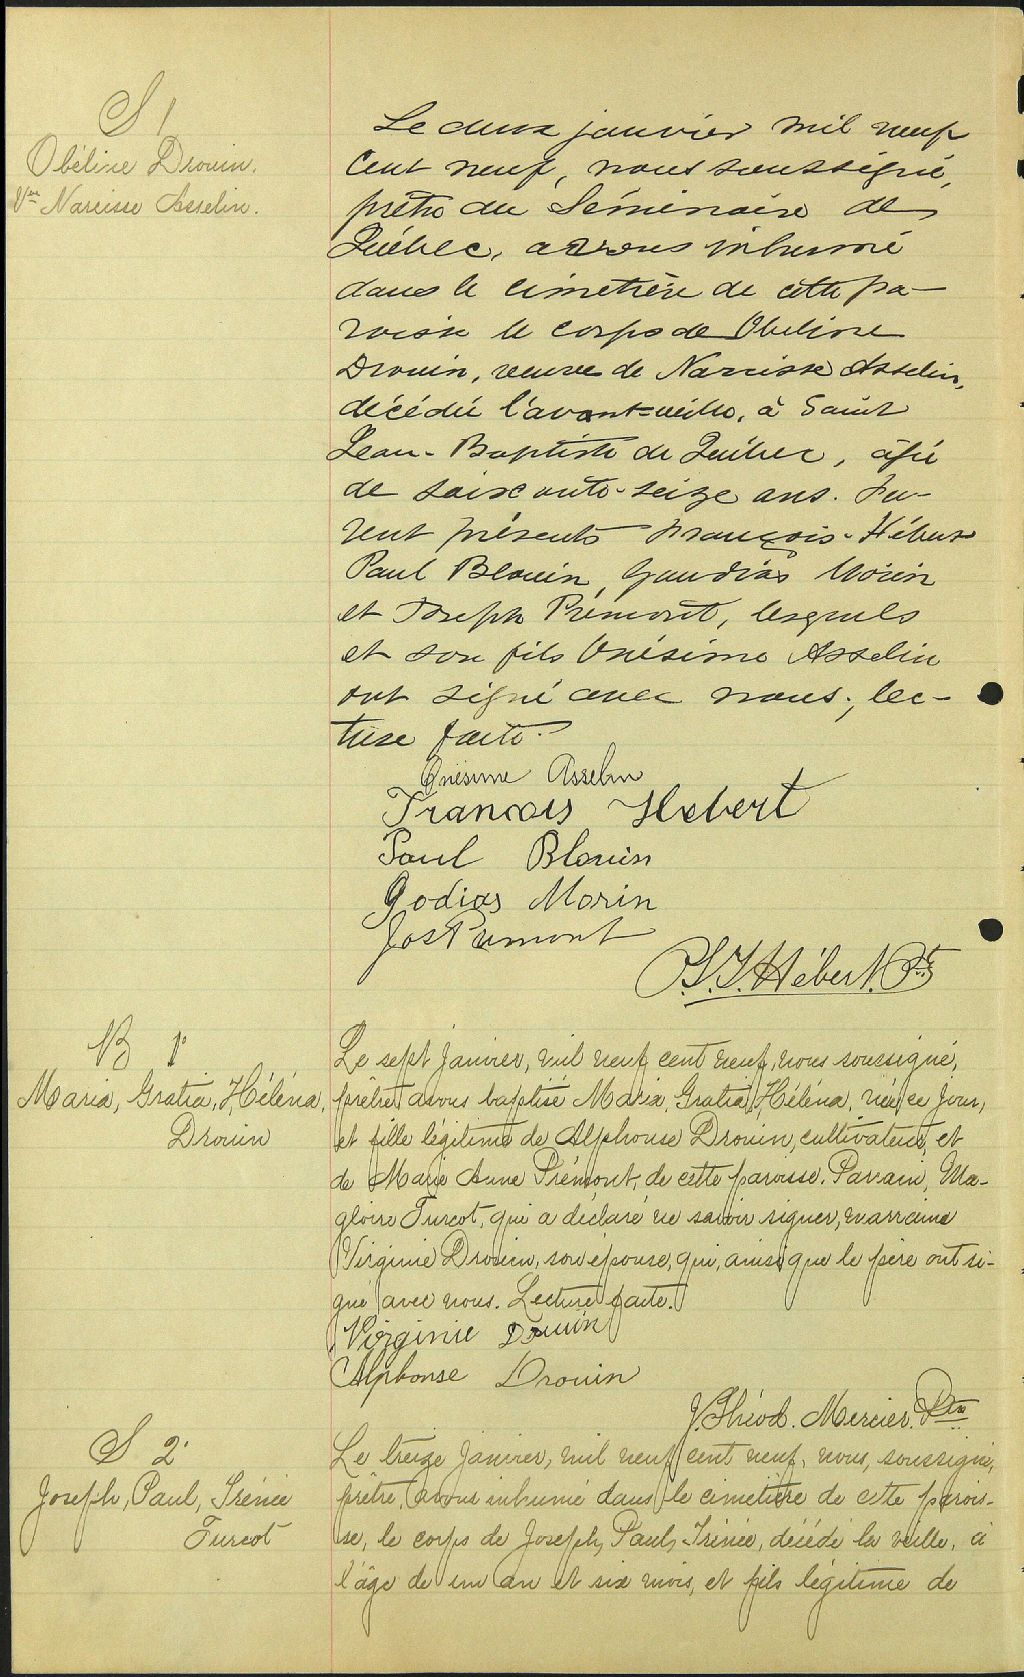 S 1
Obéline Drouin.
Vve Narcisse Asselin.
Le deux janvier mil neuf
cent neuf, nous soussigné,
prêtre du Séminaire de
Québec, avons inhumé
dans le cimetière de cette pa-
roisse le corps de Obeline
Drouin, veuve de Narcisse Asselin,
décédée l'avant-veille, à Saint
Jean-Baptiste de Québec, âgée
de soixante-seize ans. Fu-
rent présents François-Hébert
Paul Blouin, Gaudias Morin
et Joseph Prémont, lesquels
et son fils Onésime Asselin
ont signé avec nous, lec-
ture faite.
Onésime Asselin
Francois Hebert
Paul Blouin
Godias Morin
Jos Prémont
Hébert. Ptre
B 1
Maria, Gratia, Héléna,
Drouin
Le sept Janvier, mil neuf cent neuf, nous soussigné,
prêtre avons baptisé Maria, Gratia, Héléna, née ce jour,
et fille légitime de Alphonse Drouin, cultivateur, et
de Marie Anne Prémont, de cette paroisse. Parrain, Ma-
gloire Turcot, qui a déclaré ne savoir signer, marraine
Virginie Drouin, son épouse, qui, ainsi que le père ont si-
gné avec nous. Lecture faite.
Virginie Drouin
Alphonse Drouin
J. Théod. Mercier. Ptre
S 2
Joseph, Paul, Irénée
Turcot
Le treize Janvier, mil neuf cent neuf, nous, soussigné,
prêtre, avons inhumé dans le cimetière de cette parois-
se, le corps de Joseph, Paul, Irénée, décédé la veille, à
l'âge de un an et six mois, et fils légitime de